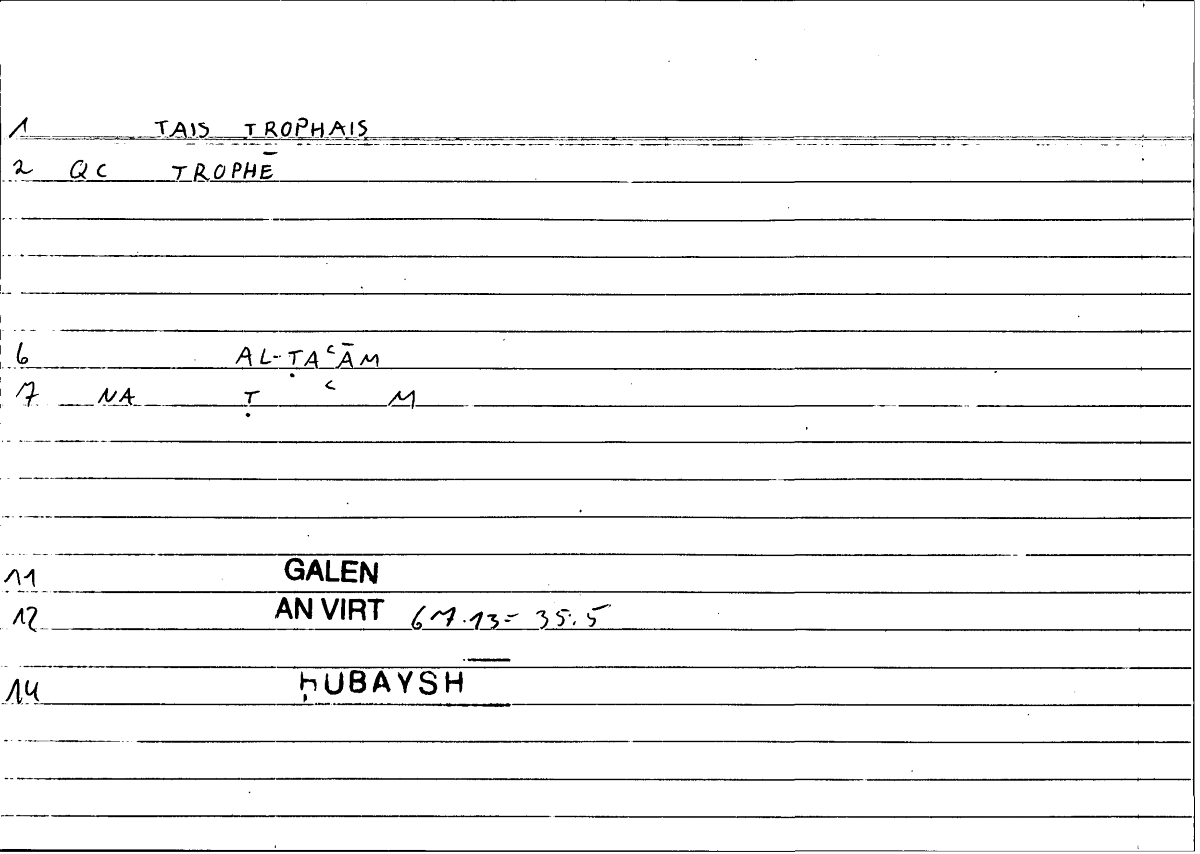 1 TAIS TROPHAIS
2 QC TROPHĒ
6 AL-ṬAʿĀM
7 NA Ṭ ʿ M
11 GALEN
12 AN VIRT 67.13 = 35.5
14 ḤUBAYSH